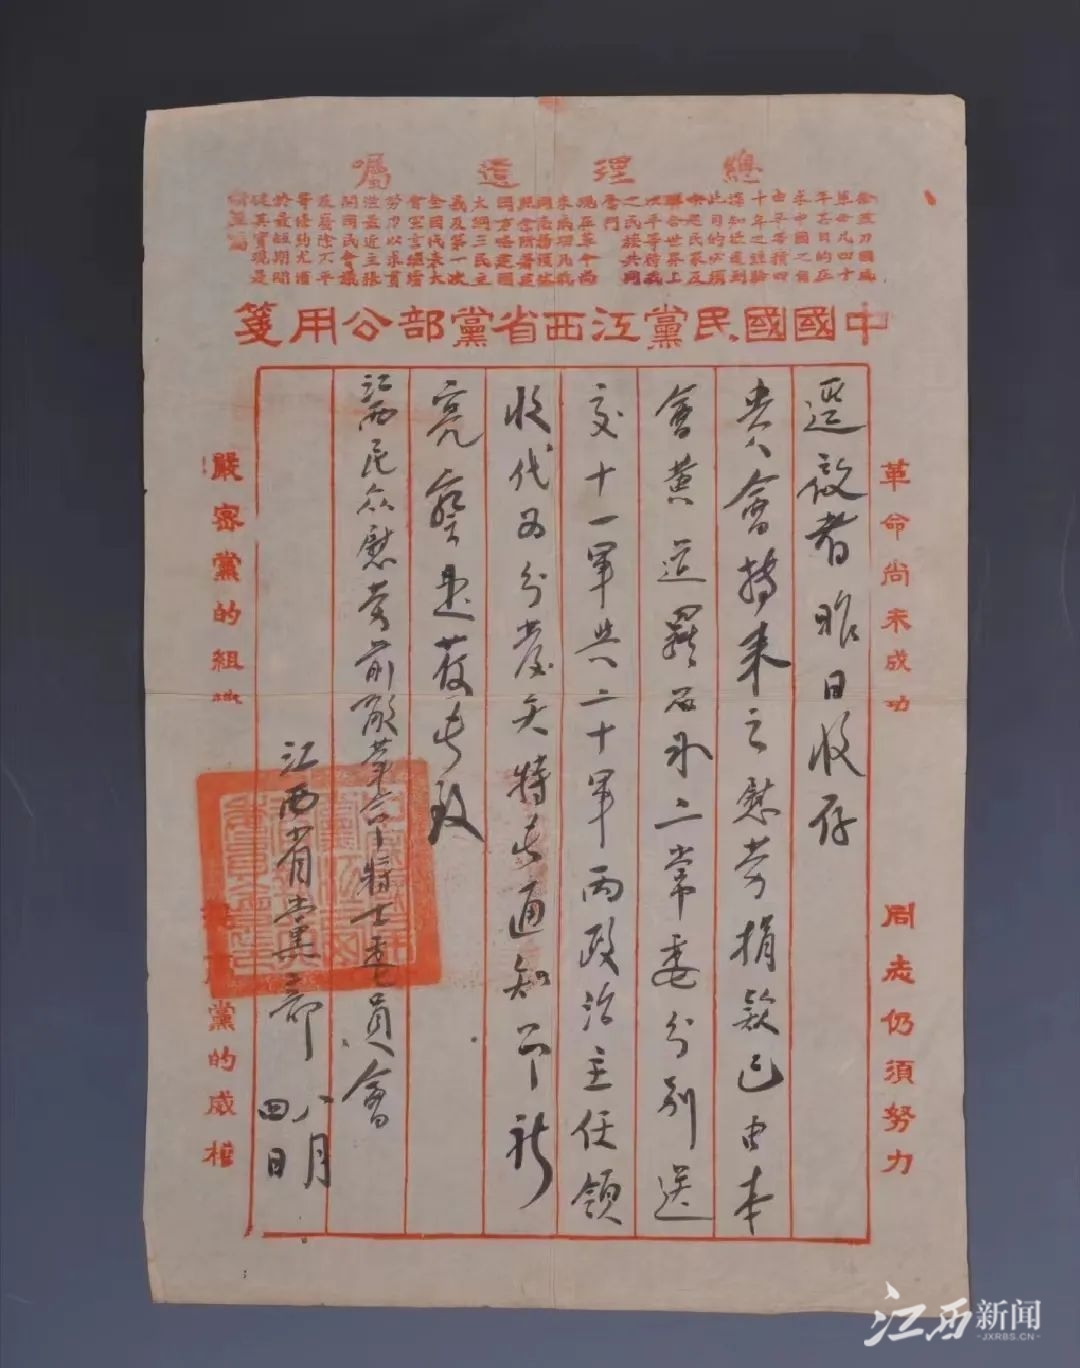 總理遺囑
余致力國民
革命凡四十
年其目的在
求中國之自
由平等積四
十年之經驗
深知欲達到
此目的必須
喚起民眾及
聯合世界上
以平等待我
之民族共同
奮鬥
現在革命尚
未成功凡我
同志務須依
照余所著建
國方略建國
大綱三民主
義及第一次
全國代表大
會宣言繼續
努力以求貫
徹最近主張
開國民會議
及廢除不平
等條約尤須
於最短期間
促其實現是
所至囑
中國國民黨江西省黨部公用箋
革命尚未成功
同志仍須努力
逕啟者昨日收存
貴會持來之慰勞捐款已由本
會黄道羅石冰二常委分别送
交十一軍與二十軍兩政治主任領
收代为分發矣特此通知即祈
亮察是荷此致
江西民众慰劳前敵革命将士委員會
江西省黨部
八月
四日
嚴密黨的組織
黨的威權
江西新闻
JXRBS.CN